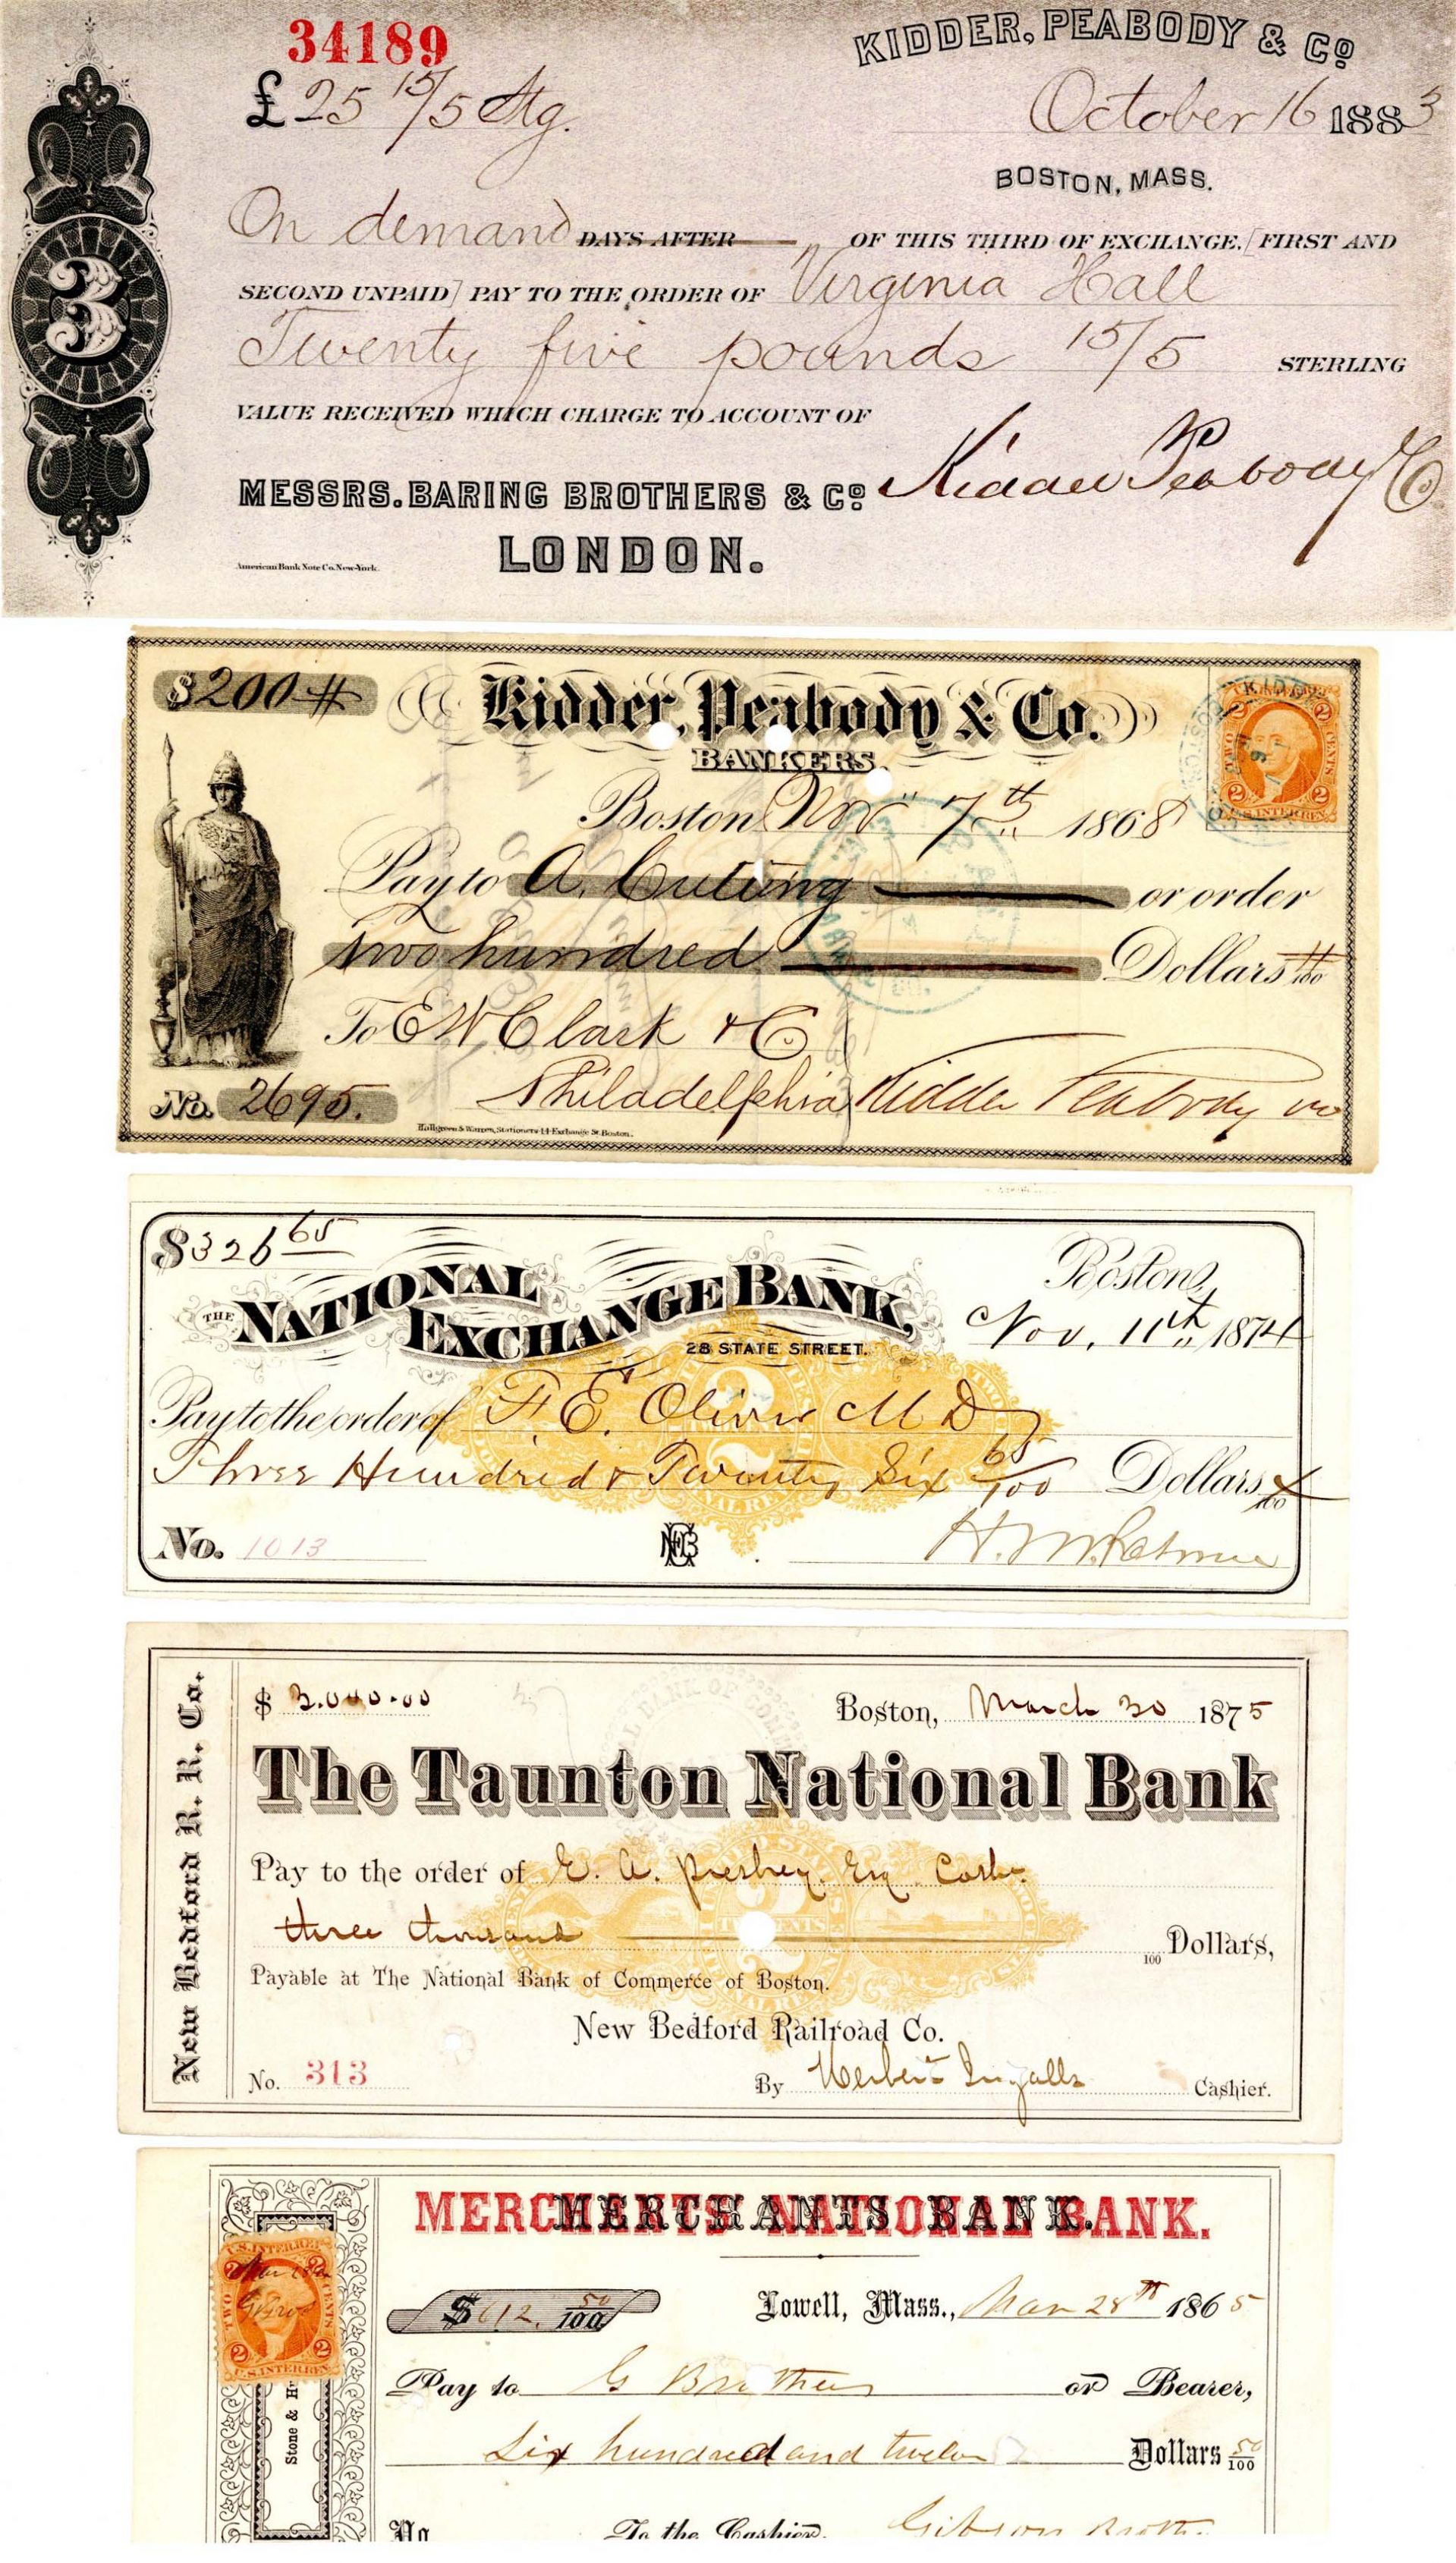 34189
KIDDER, PEABODY & Co
£ 25 15/5 Stg.
October 16 1883
BOSTON, MASS.
On demand DAYS AFTER OF THIS THIRD OF EXCHANGE. [FIRST AND
SECOND UNPAID] PAY TO THE ORDER OF Virginia Hall
Twenty five pounds 15/5 STERLING
VALUE RECEIVED WHICH CHARGE TO ACCOUNT OF
MESSRS. BARING BROTHERS & Co Kidder Peabody & Co
LONDON.
American Bank Note Co. New-York.
3
$200 #
Kidder, Peabody & Co.
BANKERS.
U.S. INTER. REV.
TWO CENTS
2 2
Boston Nov 7th 1868
Pay to A. Cutting or order
two hundred Dollars
To E W Clark & Co
Philadelphia Kidder Peabody & Co
No. 2695.
Hallgreen & Warren, Stationers 14 Exchange St. Boston.
$326 65
THE NATIONAL EXCHANGE BANK,
28 STATE STREET.
Boston,
Nov. 11th 1874
Pay to the order of F. E. Oliver M D
Three Hundred & Twenty Six 65/100 Dollars
No. 1013
New Bedford R. R. Co.
$ 3.000.00
Boston, March 30 1875
The Taunton National Bank
Pay to the order of E. A. Presbrey Esq Cashr.
three thousand 100 Dollars,
Payable at The National Bank of Commerce of Boston.
New Bedford Railroad Co.
No. 313
By Herbert Ingalls Cashier.
MERCHANTS NATIONAL BANK.
MERCHANTS BANK.
U.S. INTER. REV.
TWO CENTS
2 2
Stone & H
$612. 50/100
Lowell, Mass., Mar 28th 1865
Pay to G Brothers or Bearer,
Six hundred and twelve Dollars 50/100
No To the Cashier. Gibson Broth.